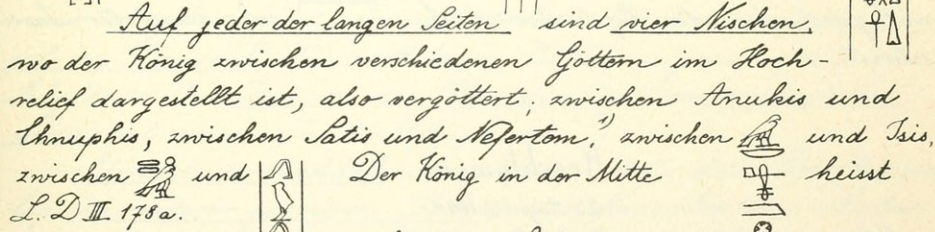 Auf jeder der langen Seiten sind vier Nischen,
wo der König zwischen verschiedenen Göttern im Hoch-
relief dargestellt ist, also vergöttert; zwischen Anukis und
Chnuphis, zwischen Satis und Nefertem,¹⁾ zwischen und Isis,
zwischen und Der König in der Mitte heisst
L. D III. 178a.